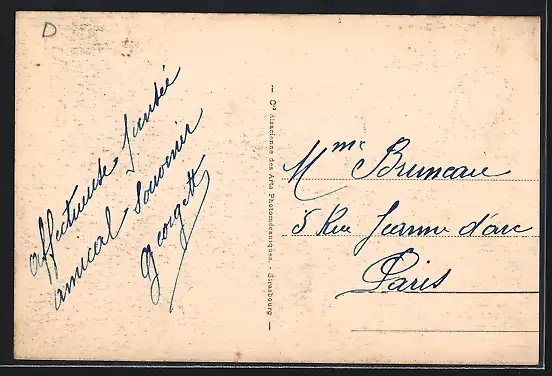 D
affectueuse pensée
amical souvenir
Georgette
— Cie Alsacienne des Arts Photomécaniques. - Strasbourg —
Mme Bruneau
5 Rue Jeanne d'arc
Paris